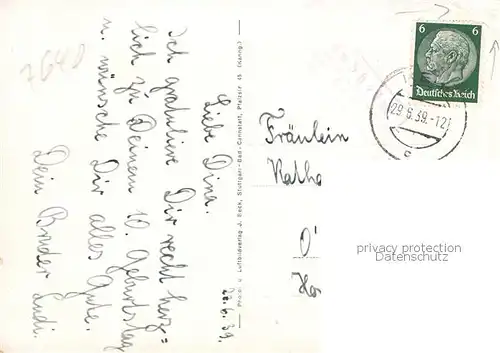 6 6
Deutsches Reich
29.6.39.-12
c
28.6.39.
Liebe Dina.
Ich gratuliere Dir recht herz=
lich zu Deinem 10. Geburtstag
u. wünsche Dir alles Gute.
Dein Bruder Ludi.
Photo u. Luftbildverlag J. Beck, Stuttgart-Bad-Cannstatt, Pfalzstr. 45
Fräulein
Katha
O'
privacy protection
Datenschutz